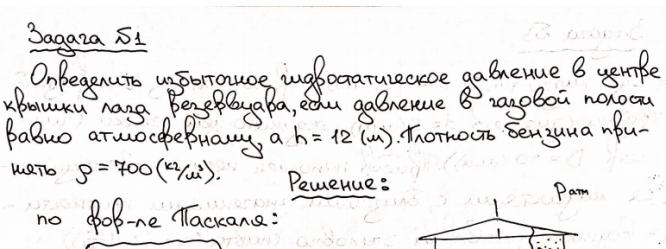 Задача Б1
Определить избыточное гидростатическое давление в центре
крышки лаза резервуара, если давление в газовой полости
равно атмосферному, а h = 12 (м). Плотность бензина при-
нять ρ = 700 (кг/м³).
Решение:
Pат
по фор-ле Паскаля: